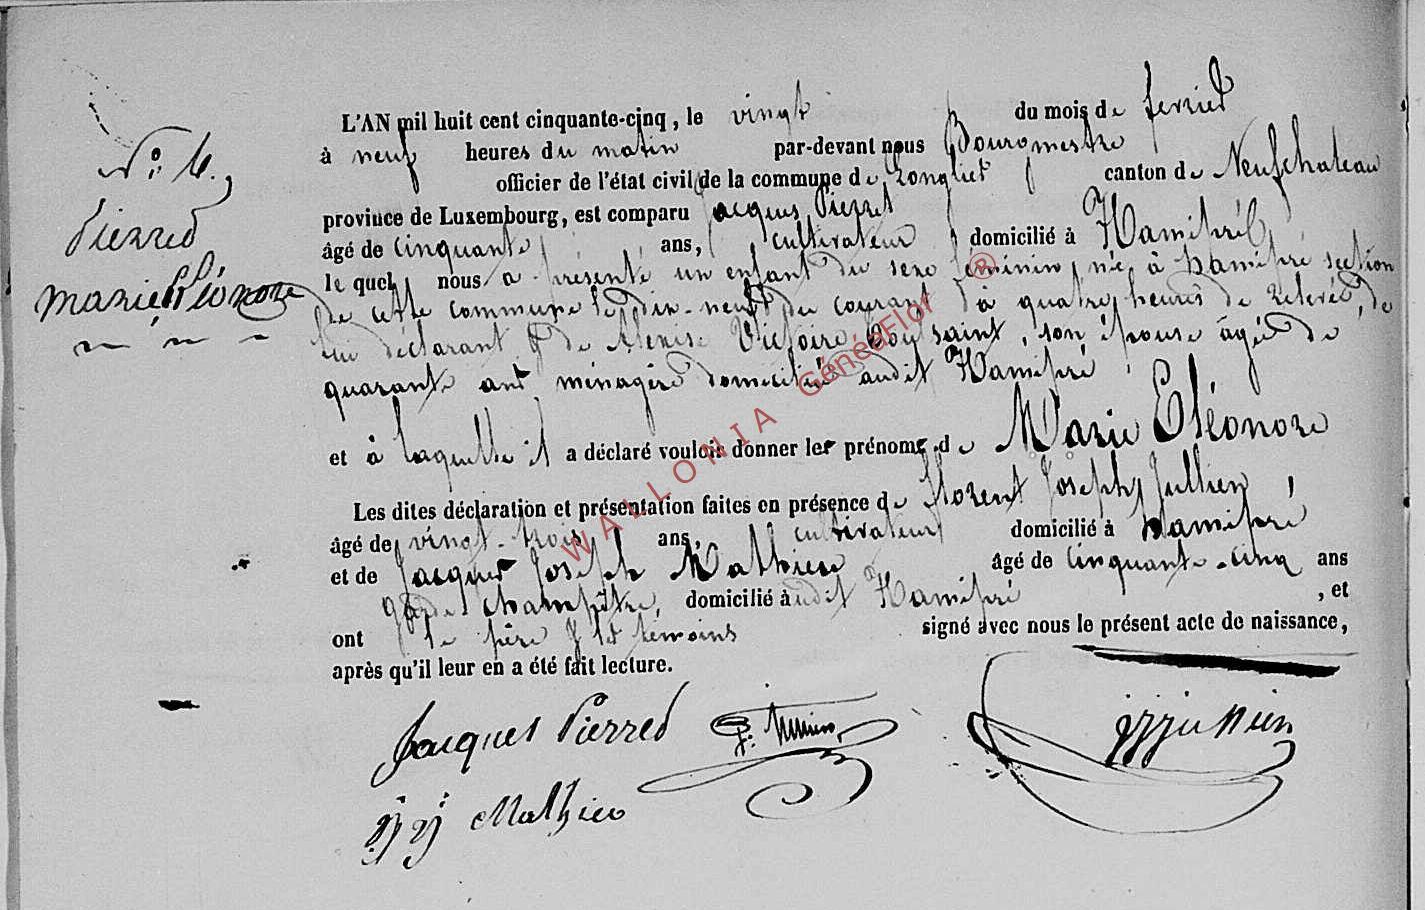 L'AN mil huit cent cinquante-cinq, le vingt du mois de fevrier
à neuf heures du matin par-devant nous Bourgmestre
officier de l'état civil de la commune de Longlier canton de Neufchateau
province de Luxembourg, est comparu Jacques Pierret
âgé de cinquante ans, cultivateur domicilié à Hamipré
le quel nous a présenté un enfant du sexe féminin, née à hamipré section
de cette commune le dix-neuf du courant à quatre heures de relevée, de
lui déclarant & de Alexise Victoire son épouse âgée de
quarante ans ménagère domiciliée audit Hamipré
et à laquelle il a déclaré vouloir donner les prénoms de Marie Eléonore
Les dites déclaration et présentation faites en présence de Florent Joseph Jullien,
âgé de vingt-trois ans, cultivateur domicilié à hamipré
et de Jacques Joseph Mathieu âgé de cinquante-cinq ans
garde champêtre, domicilié audit Hamipré, et
ont le père & les témoins signé avec nous le présent acte de naissance,
après qu'il leur en a été fait lecture.
N°: 6.
Pierret
marie Eléonore
Jacques Pierret
jj Mathieu
WALLONIA GénéaFlor ®